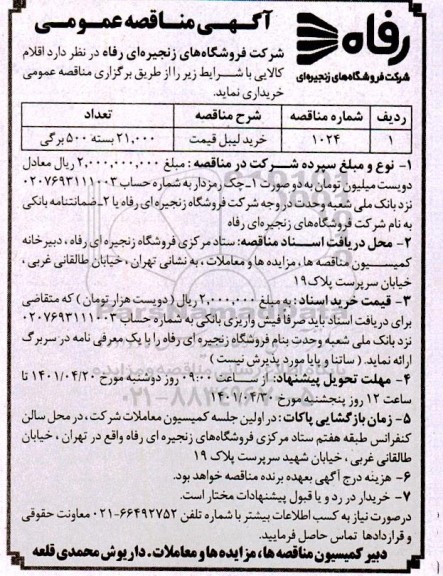 آگهی مناقصه عمومی
رفاه
شرکت فروشگاه‌های زنجیره‌ای
شرکت فروشگاه‌های زنجیره‌ای رفاه در نظر دارد اقلام
کالایی با شرایط زیر را از طریق برگزاری مناقصه عمومی
خریداری نماید.
ردیف شماره مناقصه شرح مناقصه تعداد
۱ ۱۰۲۴ خرید لیبل قیمت ۲۱,۰۰۰ بسته ۵۰۰ برگی
۱- نوع و مبلغ سپرده شرکت در مناقصه : مبلغ ۲,۰۰۰,۰۰۰,۰۰۰ ریال معادل
دویست میلیون تومان به دو صورت ۱-چک رمزدار به شماره حساب ۰۲۰۷۶۹۳۱۱۱۰۰۳
نزد بانک ملی شعبه وحدت در وجه شرکت فروشگاه زنجیره ای رفاه یا ۲-ضمانتنامه بانکی
به نام شرکت فروشگاه‌های زنجیره‌ای رفاه
۲- محل دریافت اسناد مناقصه: ستاد مرکزی فروشگاه زنجیره ای رفاه ، دبیرخانه
کمیسیون مناقصه ها ، مزایده ها و معاملات ، به نشانی تهران ، خیابان طالقانی غربی ،
خیابان سرپرست پلاک ۱۹
۳- قیمت خرید اسناد : به مبلغ ۲,۰۰۰,۰۰۰ ریال ( دویست هزار تومان ) که متقاضی
برای دریافت اسناد باید صرفا فیش واریزی بانکی به شماره حساب ۰۲۰۷۶۹۳۱۱۱۰۰۳
نزد بانک ملی شعبه وحدت بنام فروشگاه زنجیره ای رفاه را با یک معرفی نامه در سربرگ
ارائه نماید. ( ساتنا و پایا مورد پذیرش نیست )
۴- مهلت تحویل پیشنهاد: از ساعت ۰۹:۰۰ روز دوشنبه مورخ ۱۴۰۱/۰۴/۲۰ تا
ساعت ۱۲ روز پنجشنبه مورخ ۱۴۰۱/۰۴/۳۰
۵- زمان بازگشایی پاکات : در اولین جلسه کمیسیون معاملات شرکت ، در محل سالن
کنفرانس طبقه هفتم ستاد مرکزی فروشگاه‌های زنجیره ای رفاه واقع در تهران ، خیابان
طالقانی غربی ، خیابان شهید سرپرست پلاک ۱۹
۶- هزینه درج آگهی بعهده برنده مناقصه خواهد بود.
۷- خریدار در رد و یا قبول پیشنهادات مختار است.
درصورت نیاز به کسب اطلاعات بیشتر با شماره تلفن ۶۶۴۹۲۷۵۲-۰۲۱ معاونت حقوقی
و قراردادها تماس حاصل فرمایید.
دبیر کمیسیون مناقصه ها ، مزایده ها و معاملات ، داریوش محمدی قلعه